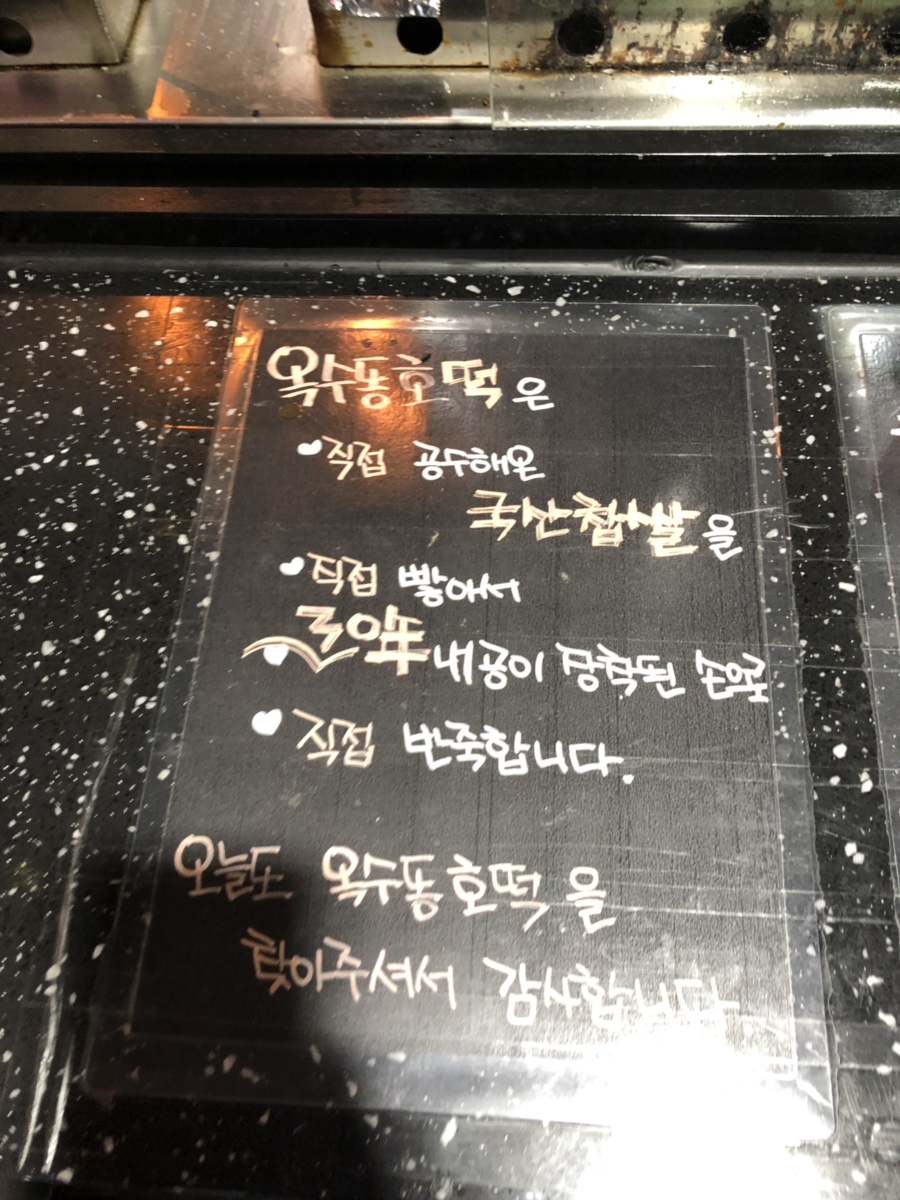 옥수동호떡은
직접 공수해온
국산찹쌀을
직접 빻아서
내공이 장착된 손으로
직접 반죽합니다.
오늘도 옥수동호떡을
찾아주셔서 감사합니다